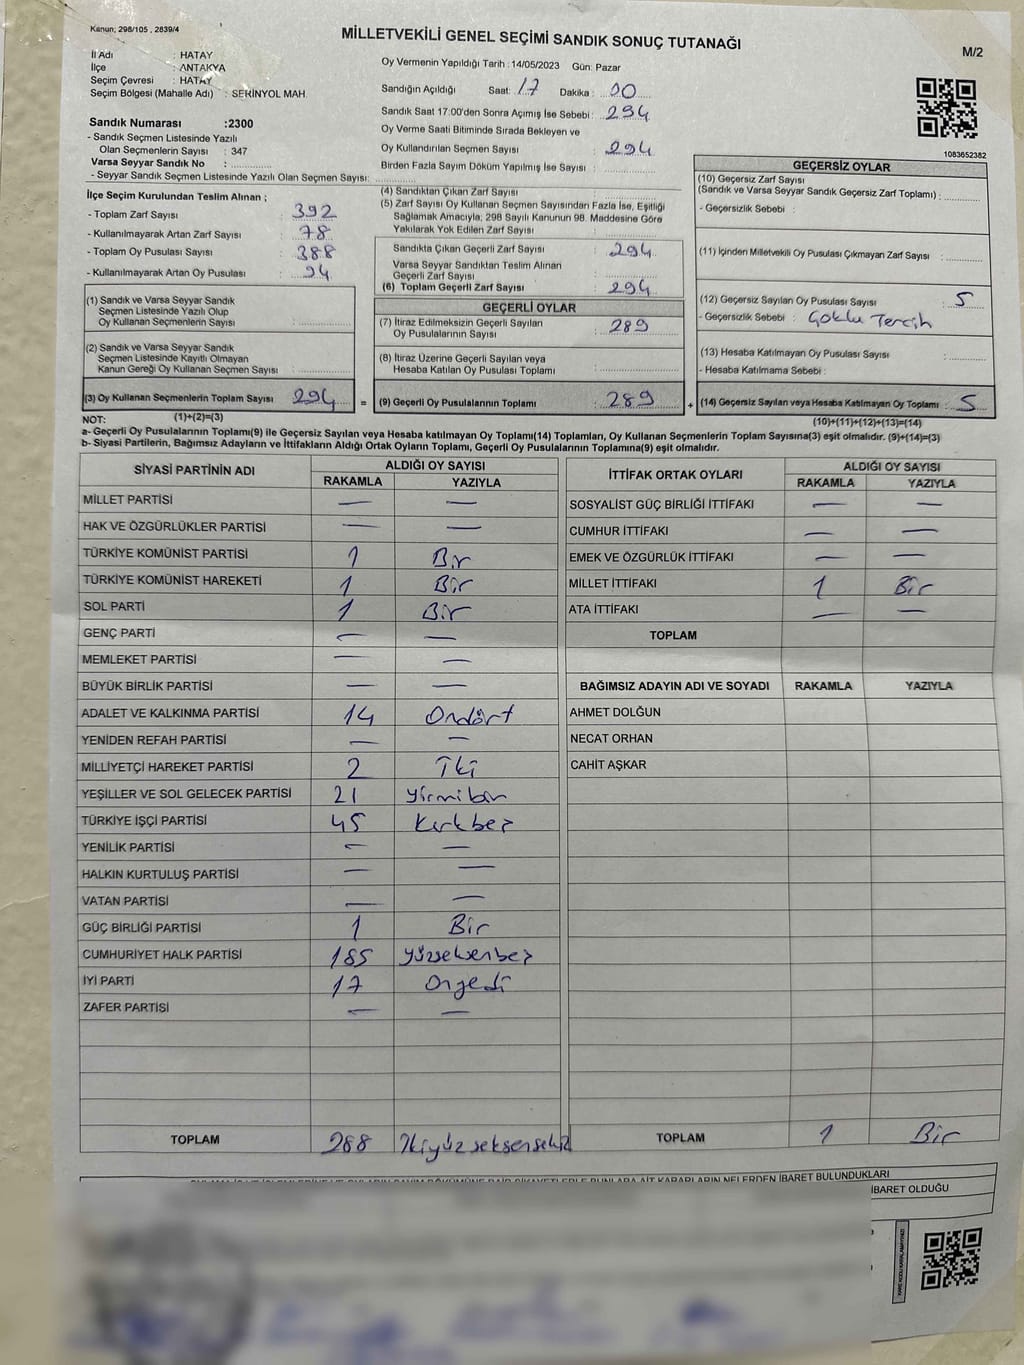 Kanun; 298/105 , 2839/4
MİLLETVEKİLİ GENEL SEÇİMİ SANDIK SONUÇ TUTANAĞI
M/2
İl Adı : HATAY
İlçe : ANTAKYA
Seçim Çevresi : HATAY
Seçim Bölgesi (Mahalle Adı) : SERİNYOL MAH.
Sandık Numarası :2300
- Sandık Seçmen Listesinde Yazılı
Olan Seçmenlerin Sayısı : 347
Varsa Seyyar Sandık No :
- Seyyar Sandık Seçmen Listesinde Yazılı Olan Seçmen Sayısı:
Oy Vermenin Yapıldığı Tarih : 14/05/2023 Gün: Pazar
Sandığın Açıldığı Saat: 17 Dakika : 00
Sandık Saat 17:00'den Sonra Açımış İse Sebebi : 294
Oy Verme Saati Bitiminde Sırada Bekleyen ve
Oy Kullandırılan Seçmen Sayısı : 294
Birden Fazla Sayım Döküm Yapılmış İse Sayısı :
1083652382
İlçe Seçim Kurulundan Teslim Alınan ;
- Toplam Zarf Sayısı : 392
- Kullanılmayarak Artan Zarf Sayısı : 78
- Toplam Oy Pusulası Sayısı : 388
- Kullanılmayarak Artan Oy Pusulası : 94
(1) Sandık ve Varsa Seyyar Sandık
Seçmen Listesinde Yazılı Olup
Oy Kullanan Seçmenlerin Sayısı :
(2) Sandık ve Varsa Seyyar Sandık
Seçmen Listesinde Kayıtlı Olmayan
Kanun Gereği Oy Kullanan Seçmen Sayısı :
(3) Oy Kullanan Seçmenlerin Toplam Sayısı : 294 =
(1)+(2)=(3)
(4) Sandıktan Çıkan Zarf Sayısı :
(5) Zarf Sayısı Oy Kullanan Seçmen Sayısından Fazla İse, Eşitliği
Sağlamak Amacıyla; 298 Sayılı Kanunun 98. Maddesine Göre
Yakılarak Yok Edilen Zarf Sayısı :
Sandıkta Çıkan Geçerli Zarf Sayısı : 294
Varsa Seyyar Sandıktan Teslim Alınan
Geçerli Zarf Sayısı :
(6) Toplam Geçerli Zarf Sayısı : 294
GEÇERLİ OYLAR
(7) İtiraz Edilmeksizin Geçerli Sayılan
Oy Pusulalarının Sayısı : 289
(8) İtiraz Üzerine Geçerli Sayılan veya
Hesaba Katılan Oy Pusulası Toplamı :
(9) Geçerli Oy Pusulalarının Toplamı : 289 +
GEÇERSİZ OYLAR
(10) Geçersiz Zarf Sayısı
(Sandık ve Varsa Seyyar Sandık Geçersiz Zarf Toplamı) :
- Geçersizlik Sebebi :
(11) İçinden Milletvekili Oy Pusulası Çıkmayan Zarf Sayısı :
(12) Geçersiz Sayılan Oy Pusulası Sayısı : 5
- Geçersizlik Sebebi : Çoklu Tercih
(13) Hesaba Katılmayan Oy Pusulası Sayısı :
- Hesaba Katılmama Sebebi :
(14) Geçersiz Sayılan veya Hesaba Katılmayan Oy Toplamı : 5
(10)+(11)+(12)+(13)=(14)
NOT:
a- Geçerli Oy Pusulalarının Toplamı(9) ile Geçersiz Sayılan veya Hesaba katılmayan Oy Toplamı(14) Toplamları, Oy Kullanan Seçmenlerin Toplam Sayısına(3) eşit olmalıdır. (9)+(14)=(3)
b- Siyasi Partilerin, Bağımsız Adayların ve İttifakların Aldığı Ortak Oyların Toplamı, Geçerli Oy Pusulalarının Toplamına(9) eşit olmalıdır.
SİYASİ PARTİNİN ADI ALDIĞI OY SAYISI
RAKAMLA YAZIYLA
MİLLET PARTİSİ — —
HAK VE ÖZGÜRLÜKLER PARTİSİ — —
TÜRKİYE KOMÜNİST PARTİSİ 1 Bir
TÜRKİYE KOMÜNİST HAREKETİ 1 Bir
SOL PARTİ 1 Bir
GENÇ PARTİ — —
MEMLEKET PARTİSİ — —
BÜYÜK BİRLİK PARTİSİ — —
ADALET VE KALKINMA PARTİSİ 14 Ondört
YENİDEN REFAH PARTİSİ — —
MİLLİYETÇİ HAREKET PARTİSİ 2 İki
YEŞİLLER VE SOL GELECEK PARTİSİ 21 Yirmibir
TÜRKİYE İŞÇİ PARTİSİ 45 Kırkbeş
YENİLİK PARTİSİ — —
HALKIN KURTULUŞ PARTİSİ — —
VATAN PARTİSİ — —
GÜÇ BİRLİĞİ PARTİSİ 1 Bir
CUMHURİYET HALK PARTİSİ 185 Yüzseksenbeş
İYİ PARTİ 17 Onyedi
ZAFER PARTİSİ — —
TOPLAM 288 İkiyüzseksensekiz
İTTİFAK ORTAK OYLARI ALDIĞI OY SAYISI
RAKAMLA YAZIYLA
SOSYALİST GÜÇ BİRLİĞİ İTTİFAKI — —
CUMHUR İTTİFAKI — —
EMEK VE ÖZGÜRLÜK İTTİFAKI — —
MİLLET İTTİFAKI 1 Bir
ATA İTTİFAKI — —
TOPLAM
BAĞIMSIZ ADAYIN ADI VE SOYADI RAKAMLA YAZIYLA
AHMET DOLĞUN
NECAT ORHAN
CAHİT AŞKAR
TOPLAM 1 Bir
NELERDEN İBARET BULUNDUKLARI
İBARET OLDUĞU